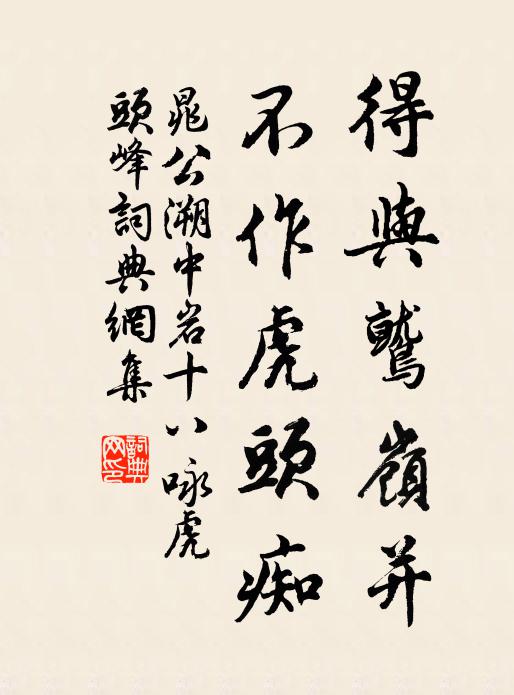 得與鷲嶺并
不作虎頭痴
晁公溯中岩十八咏虎
頭峰詞典網集
詞典网印